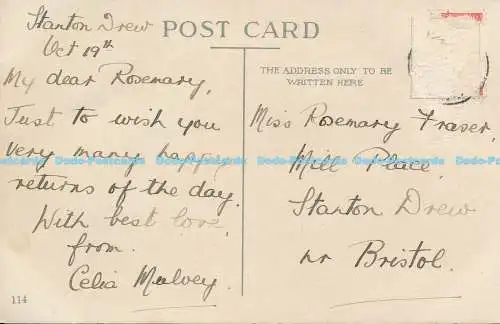 Stanton Drew
Oct 19th
POST CARD
My dear Rosemary,
Just to wish you
very many happy
returns of the day.
With best love
from
Celia Mulvey.
114
THE ADDRESS ONLY TO BE
WRITTEN HERE
Miss Rosemary Fraser,
Mill Place,
Stanton Drew
nr Bristol.
Dodo-Postcards Dodo-Postcards Dodo-Postcards Dodo-Postcards